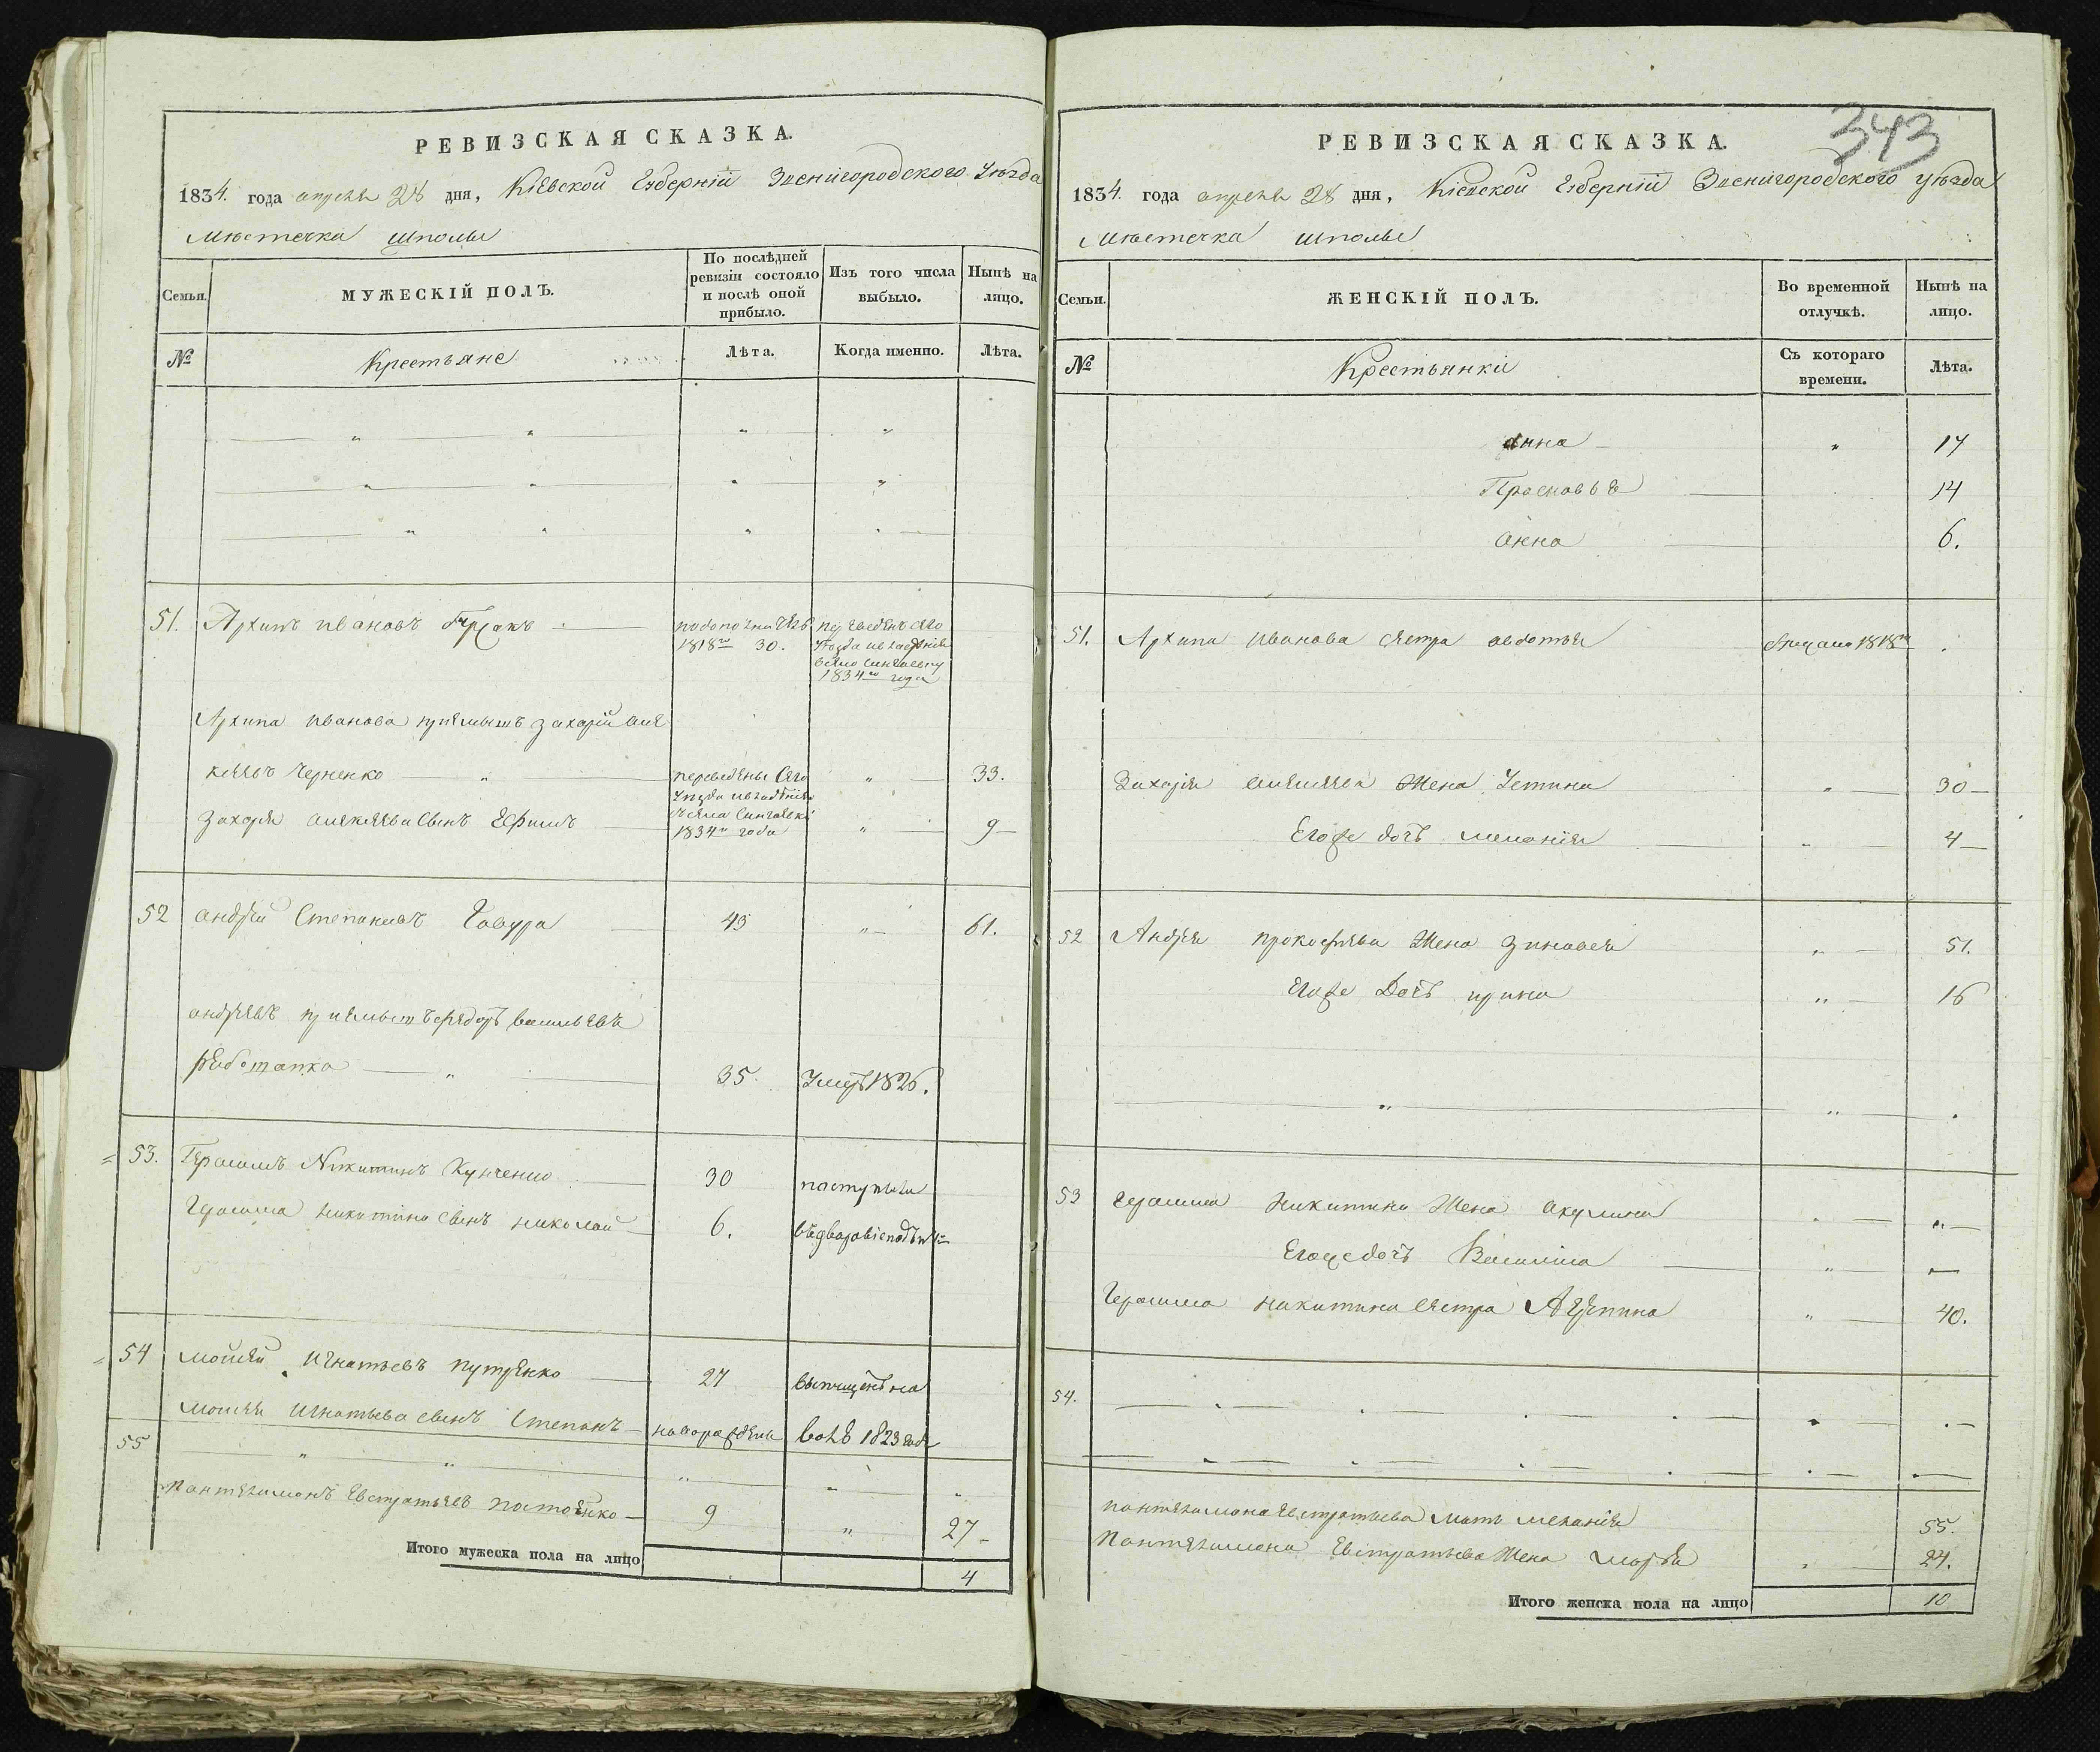 РЕВИЗСКАЯ СКАЗКА.
1834. года апреля 28 дня, Кіевской Губерніи Звенигородского Уѣзда
Мѣстечка Шполы
Семьи.
МУЖЕСКІЙ ПОЛЪ.
По послѣдней ревизіи состояло и послѣ оной прибыло.
Изъ того числа выбыло.
Нынѣ на лицо.
№
Крестьяне
Лѣта.
Когда именно.
Лѣта.
51. Архипъ Ивановъ
1818го 30.
1834го года
Архипа Иванова приемышъ Захарій Але
кеевъ Черненко " 33.
переведены сего
Уезда
1834го года
Захаря Алекеева Сынъ Ефимъ " 9
52 Андрей Степановъ Гавура 43 " 61.
Андреевъ приемышъ Федоръ Васильевъ
35. Умеръ 1826.
53. Герасимъ Никитинъ Кунченко 30 поступили
Герасима Никитина сынъ Николай 6.
54 Мойсей Игнатьевъ Путренко 27 выпущенъ на
Мойсея Игнатьева сынъ Степанъ новорожденъ волю 1823 года
55 " " " " "
Пантелимонъ Евстратьевъ Постоенко 9 " 27
Итого мужеска пола на лицо 4
343
РЕВИЗСКАЯ СКАЗКА.
1834. года апреля 28 дня, Кіевской Губерніи Звенигородского уѣзда
Мѣстечка Шполы
Семьи.
ЖЕНСКІЙ ПОЛЪ.
Во временной отлучкѣ.
Нынѣ на лицо.
№
Крестьянки
Съ котораго времени.
Лѣта.
Анна " 17
Прасковья 14
Анна 6.
51. Архипа Иванова сестра Авдотья 1818го
Захарія Алекеева Жена Устина " 30
Егоже дочь Меланія " 4
52 Андрея Прокофьева Жена Зиновея " 51.
Егоже Дочь Ирина " 16
" " .
53 Герасима Никитина Жена Акулина " "
Егоже дочь Василина "
Герасима Никитина сестра Агрипина " 40.
54.
Пантелимона Евстратьева мать Меланія 55.
Пантелимона Евстратьева Жена Марья " 24.
Итого женска пола на лицо 10